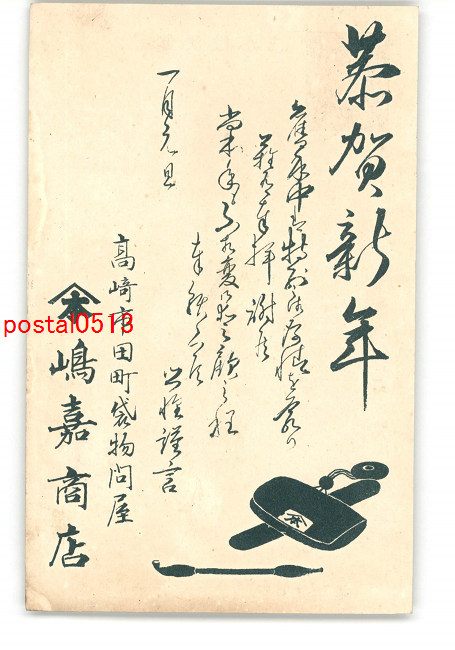 恭賀新年
舊年中は特別御厚情を蒙り
難有奉拝謝候
尚本年も不相変御愛顧之程
奉希上候
恐惶謹言
一月元旦
高崎市田町袋物問屋
本
嶋嘉商店
postal0513